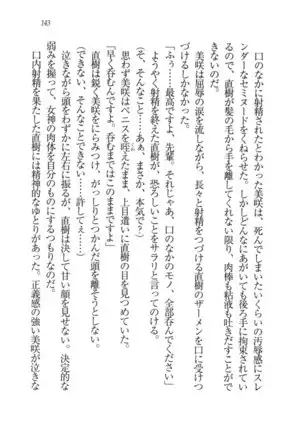 143
口のなかに射精された美咲は、死んでしまいたいくらいの汚辱感にスレ
ンダーなセミヌードをくねらせた。しかしどんなにあがいても後ろ手に拘束されてい
るうえ、直樹が髪の毛から手を離してくれない限り、肉棒も粘液も吐きだすことがで
きない。
美咲は屈辱の涙を流しながら、長々と射精をつづける直樹のザーメンを口に受けつ
づけるしかなかった。
「ふぅ……最高ですよ、先輩。それじゃあ、口のなかのモノ、全部呑んでください」
射精を終えた直樹が、恐ろしいことをサラリと言ってのける。
(そ、そんなこと……あぁ、まさか、本気で?)
思わず美咲はペニスを咥えたまま、上目遣いに直樹の目を見つめていた。
「早く呑むんですよ。呑むまで、このままですよ」
直樹は鋭く美咲をにらみつけ、がっしりとつかんだ頭を離そうとしない。
(できない、そんなことできない……許してぇ……)
泣きながら頭をわずかに左右に振るが、直樹は決して甘い顔を見せない。決定的な
弱みを握って、女神の肉体を自分のものにするつもりなのだ。
口内射精を果たした直樹には精神的なゆとりがあった。正義感の強い美咲が泣きな